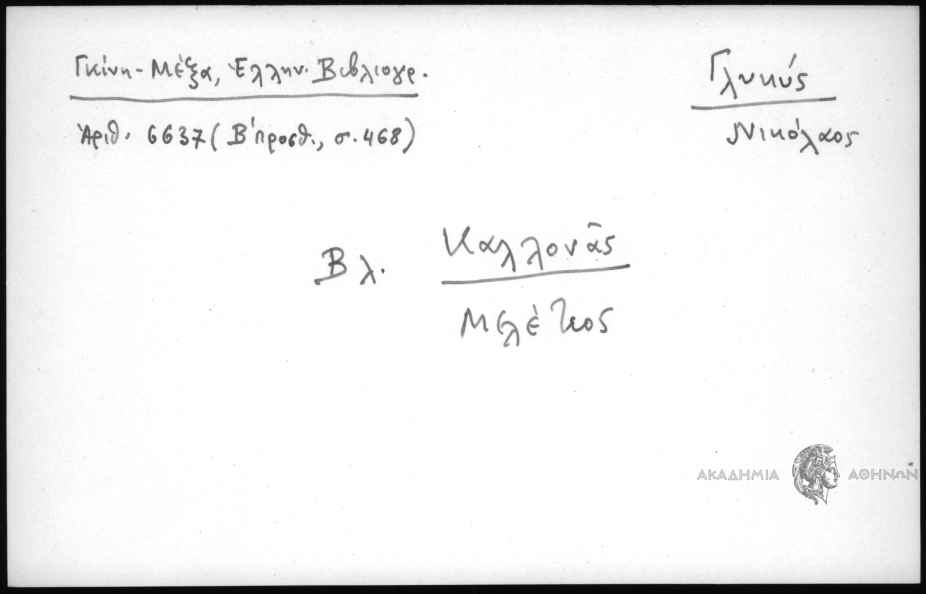 Γκίνη-Μέξα, Ἑλλην. Βιβλιογρ.
Ἀριθ. 6637 (Β' προσθ., σ. 468)
Γλυκύς
Νικόλαος
Βλ. Καλλονᾶς
Μελέτιος
ΑΚΑΔΗΜΙΑ ΑΘΗΝΩΝ